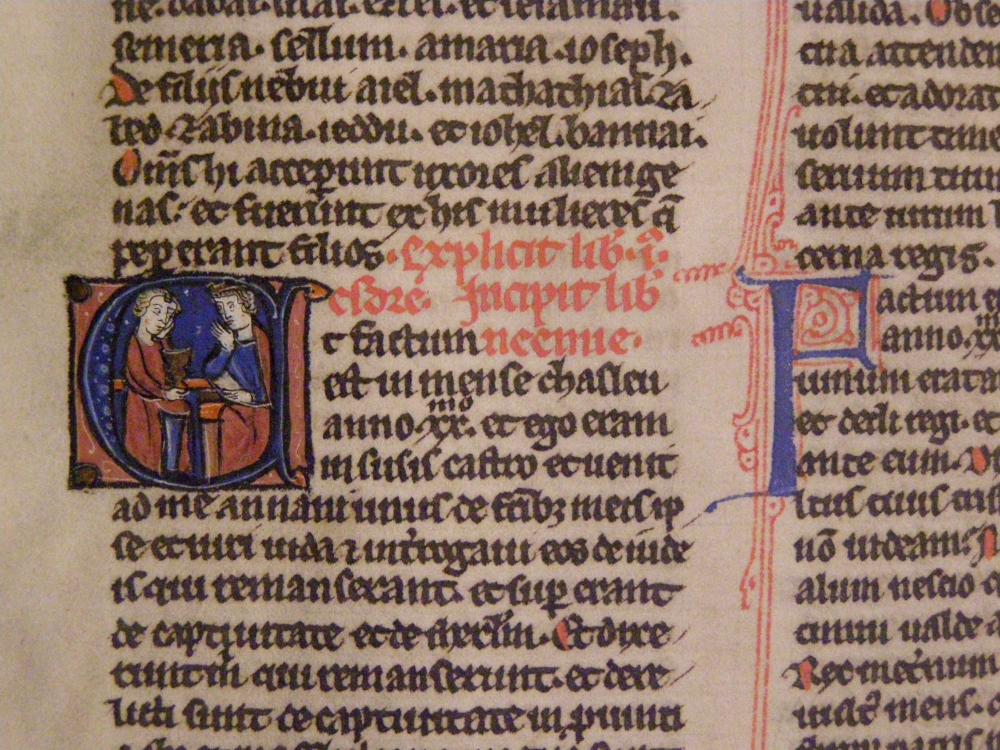 semeria. sellum. amaria. ioseph.
De filiis nebui aiel. mathathias. za
bed. zabina. ieddu. et iohel. bannai.
Om̄s hi acceperunt uxores alienige
nas. et fuerunt ex his mulieres q̄
pepererant filios. Explicit lib. i.
esdre. Incipit lib
t factum neemie.
est in mense chasleu
anno. xx. mo et ego eram
in susis castro et uenit
ad me anani unus de fr̄ibꝫ meis ip
se et uiri iuda ⁊ int̄rogaui eos de iude
is qui remanserant. et sup erant
de captiuitate et de ih̄erlm̄. Et dixe
runt m̄ qui remanserunt. et dere
licti sunt de captiuitate in ꝓuinci
ualida. Obse
cui. et adorat
uolunt time
seruum tuu
ante uirum h
cerna regis.
Factum e
anno. xx
uinum erat a
et dedi regi. et
ante eum.
ltus tuus tris
nō uideam.
alum nescio
timui ualde